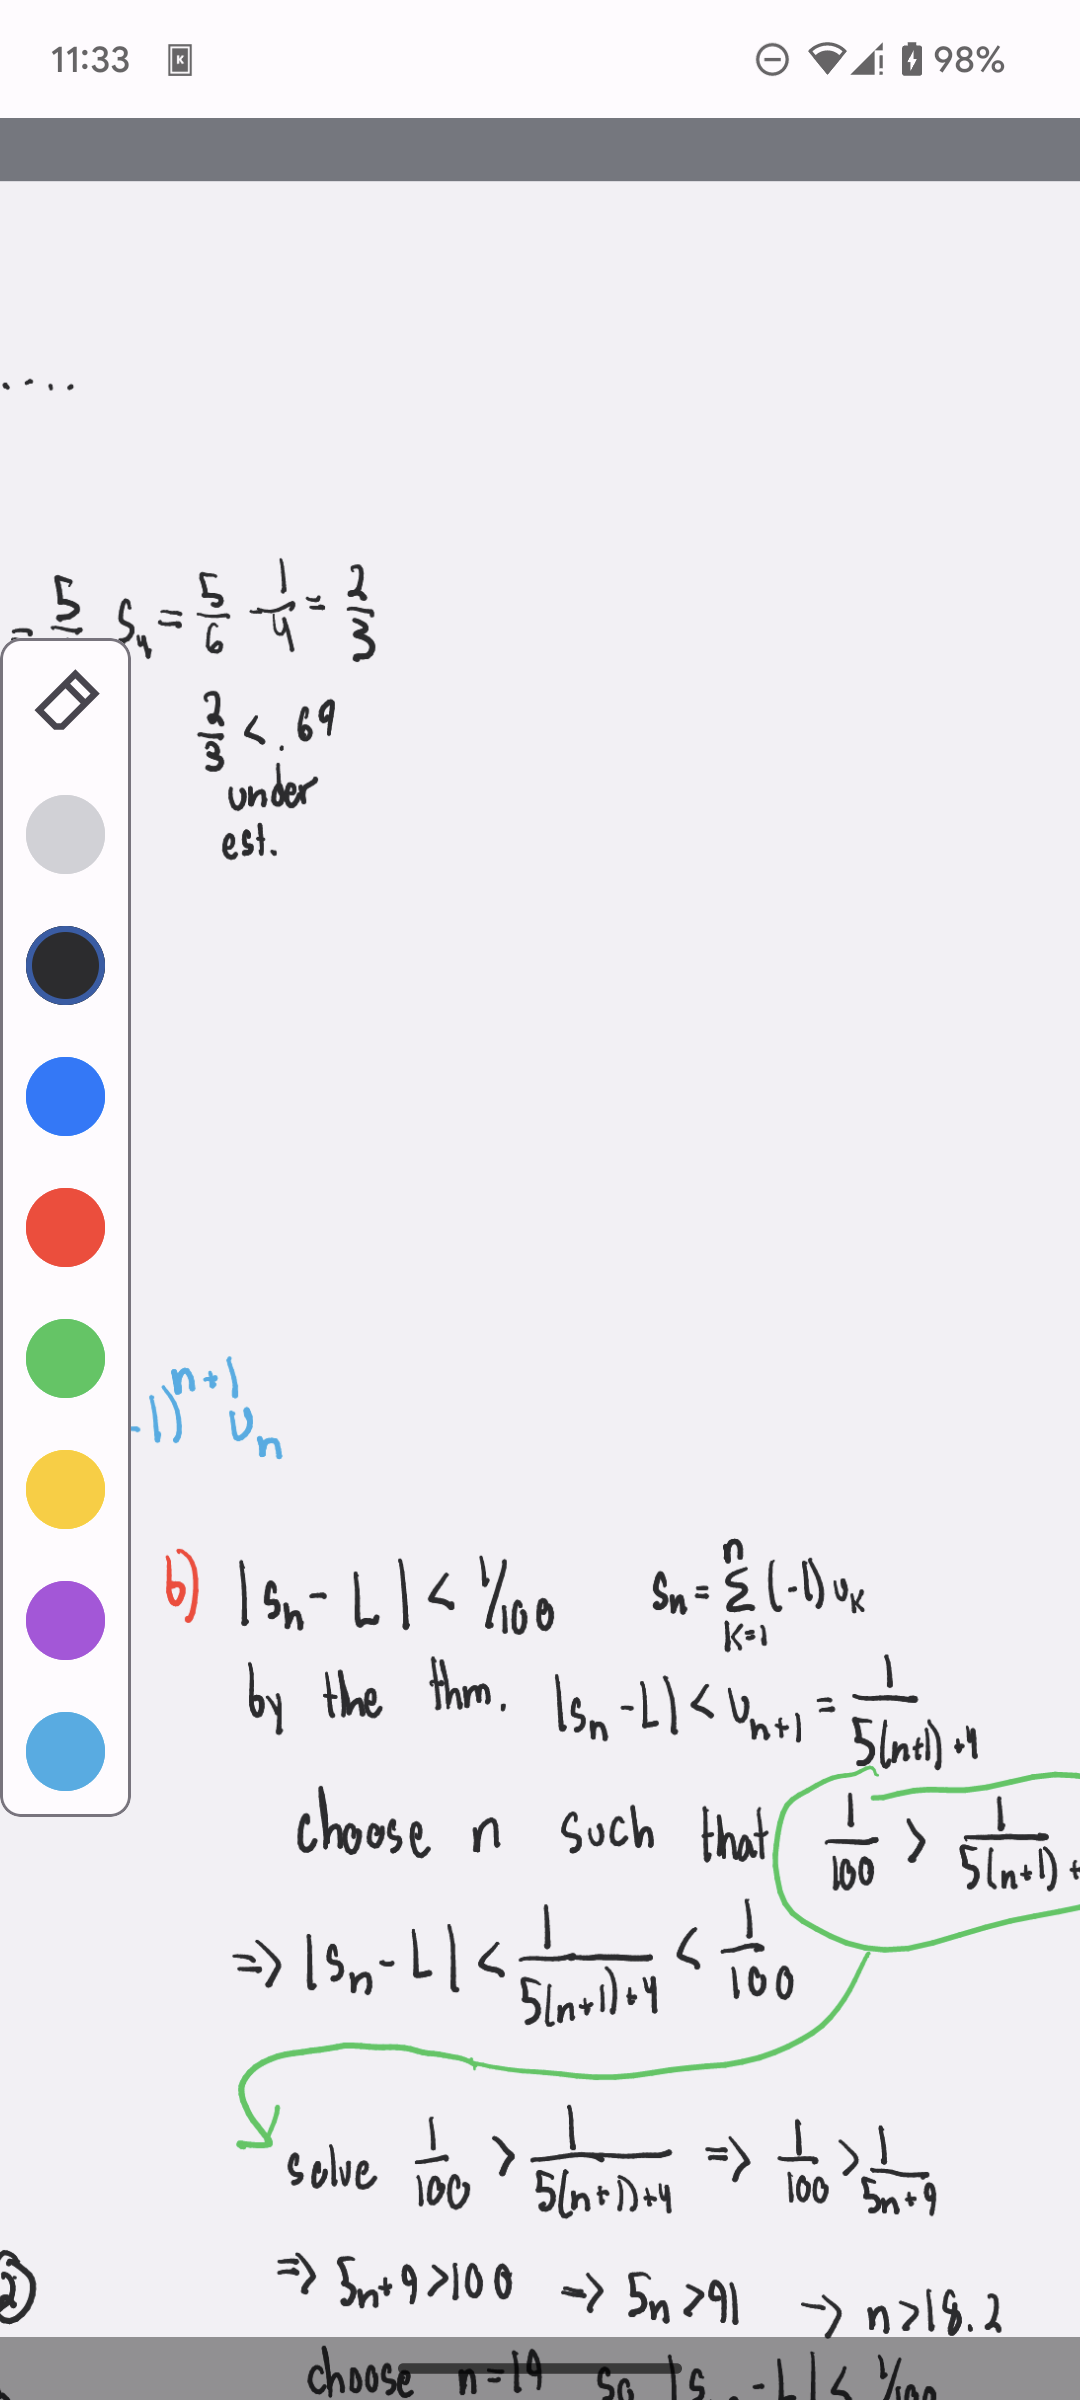 11:33 98%
....
= 5 s₄ = 5/6 - 1/4 = 2/3
2/3 < .69
under
est.
-1)ⁿ⁺¹ uₙ
b) |sₙ - L| < 1/100 sₙ = Σₖ₌₁ⁿ (-1) uₖ
by the thm. |sₙ - L| < uₙ₊₁ = 1/5(n+1)+4
choose n such that 1/100 > 1/5(n+1)+
=> |sₙ - L| < 1/5(n+1)+4 < 1/100
solve 1/100 > 1/5(n+1)+4 => 1/100 > 1/5n+9
=> 5n+9>100 => 5n >91 -> n>18.2
2
choose n=19 so |s - L| < 1/100